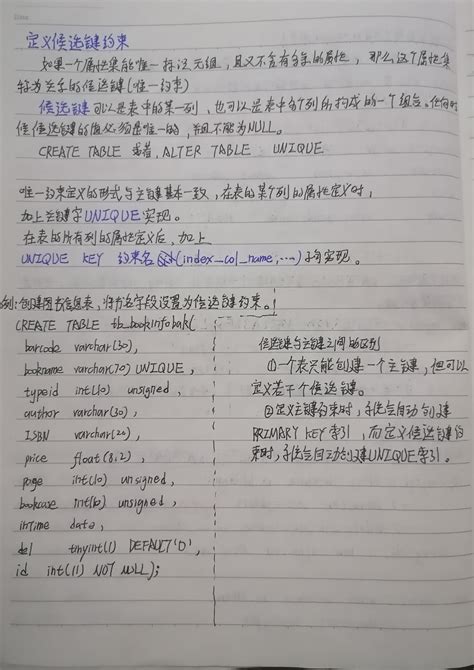 定义候选键约束
如果一个属性集能唯一标识元组，且又不含有多余的属性，那么这个属性集
称为关系的候选键(唯一约束)
候选键可以是表中的某一列，也可以是表中多个列所构成的一个组合。任何时
候候选键的值必须是唯一的，并且不能为NULL。
CREATE TABLE 或者 ALTER TABLE UNIQUE
唯一约束定义的形式与主键基本一致，在表的某个列的属性定义时，
加上关键字UNIQUE实现。
在表的所有列的属性定义后，加上
UNIQUE KEY 约束名 (index_col_name,...)子句实现。
例：创建图书信息表，将书名字段设置为候选键约束。
CREATE TABLE tb_bookinfobak(
barcode varchar(30),
bookname varchar(70) UNIQUE,
typeid int(10) unsigned,
author varchar(30),
ISBN varchar(20),
price float(8,2),
page int(10) unsigned,
bookcase int(10) unsigned,
inTime date,
del tinyint(1) DEFAULT'0',
id int(11) NOT NULL);
候选键与主键之间的区别
①一个表只能创建一个主键，但可以
定义若干个候选键。
②定义主键约束时，系统会自动创建
PRIMARY KEY索引，而定义候选键约
束时，系统会自动创建UNIQUE索引。